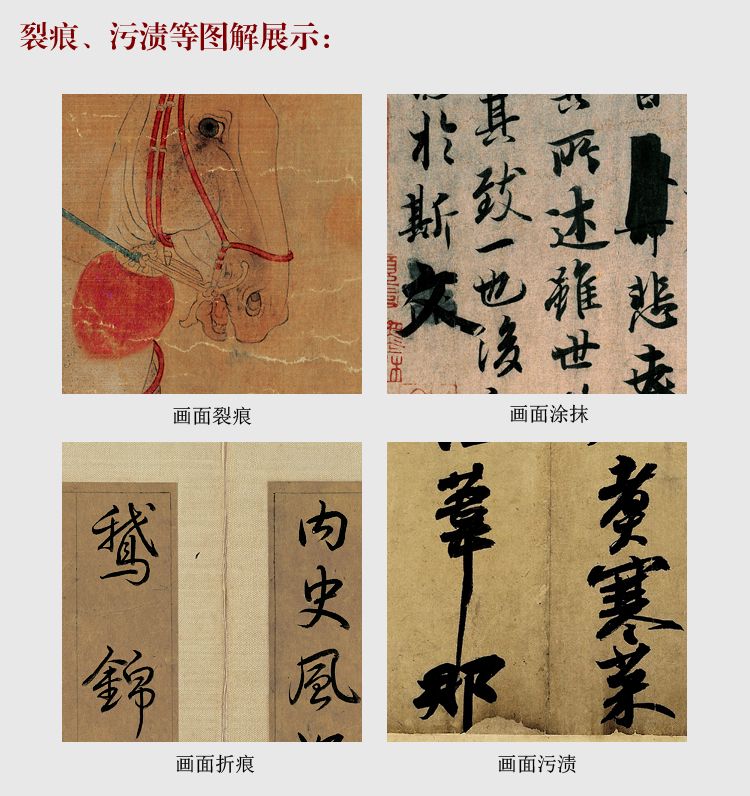 裂痕、污渍等图解展示:
悲夫
所述雖世
其致一也後
於斯文
画面裂痕
画面涂抹
内史風
鵝錦
煮寒菜
葦那
画面折痕
画面污渍